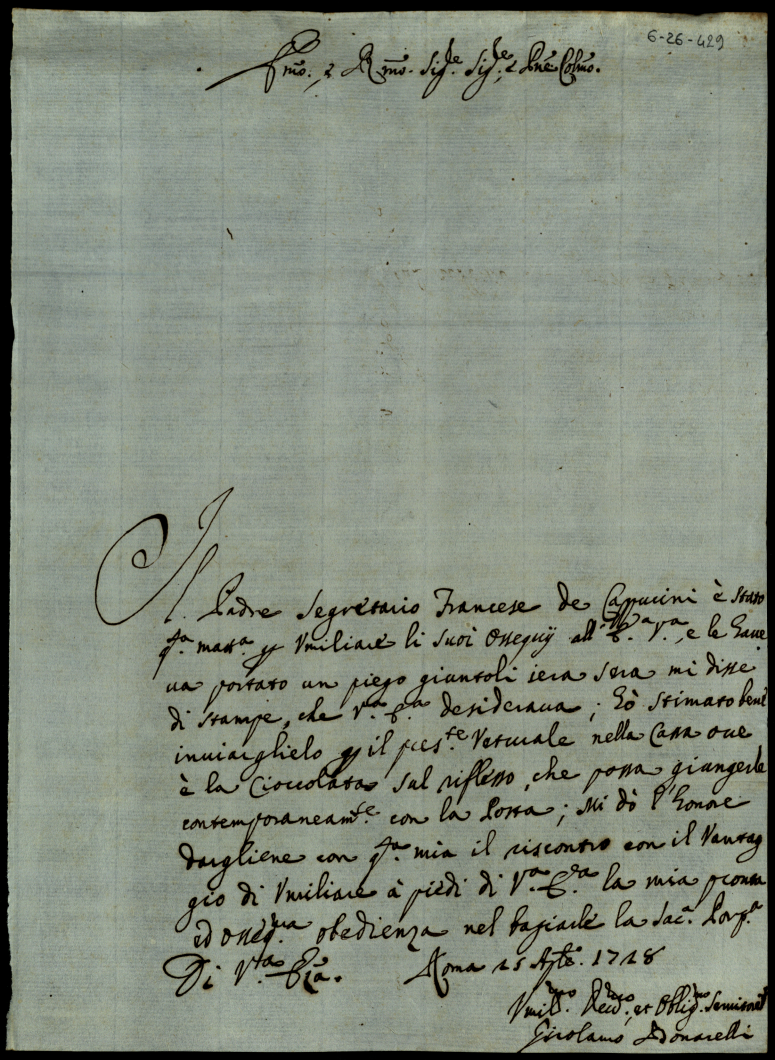 6-26-429
Emo. e Rmo. Sig.re Sig.re, e Pne Colmo.
Il Padre Segretario Francese de Cappucini è stato
q.ta matt.a p Umiliare li suoi Ossequij all' E.a V.a, e le have
ua portato un piego giuntoli iera sera mi disse
di stampe, che V.a E.a desideraua; hò stimato bene
inuiarglielo p il pres.te Veturale nella Cassa oue
è la Cioccolata sul riflesso, che possa giungerle
contemporaneam.te con la Posta; Mi dò l'honore
dargliene con q.ta mia il riscontro con il Vantag
gio di Umiliare à piedi di V.a E.a la mia pronta
ed osseq.ma obedienza nel bagiarle la Sac.a Porp.a
Di V.ra E.za. Roma 15 1718
Umil.mo Deu.mo, et Oblig.mo Seruitore
Girolamo